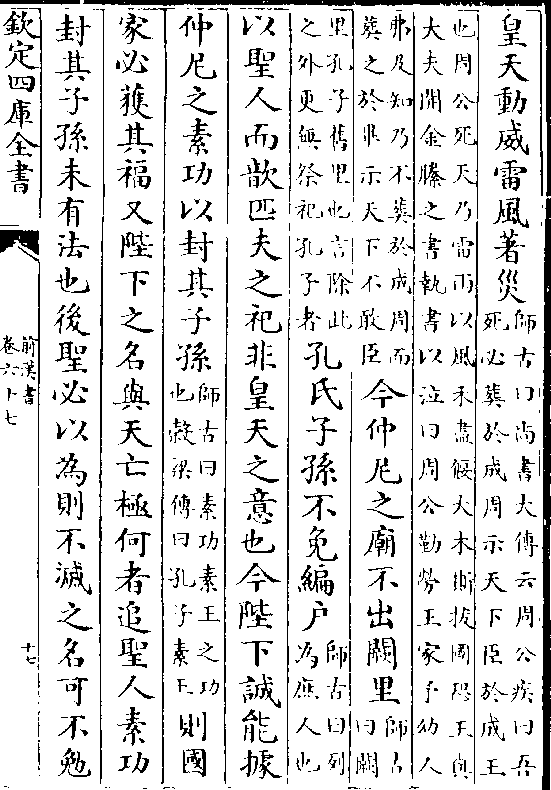 皇天動威雷風著災師古曰尚書大傳云周公疾曰吾死必葬於成周示天下臣於成王
也周公死天乃雷雨以風禾盡偃大木斯拔國恐王與大夫開金縢之書執書以泣曰周公勤勞王家予幼人
弗及知乃不葬於成周而葬之於畢示天下不敢臣今仲尼之廟不出闕里師古曰闕
里孔子舊里也言除此之外更無祭祀孔子者孔氏子孫不免編戶師古曰列為庶人也
以聖人而歆匹夫之祀非皇天之意也今陛下誠能據
仲尼之素功以封其子孫師古曰素功素王之功也穀梁傳曰孔子素王則國
家必獲其福又陛下之名與天亡極何者追聖人素功
封其子孫未有法也後聖必以為則不滅之名可不勉
欽定四庫全書
前漢書
卷六十七
十七